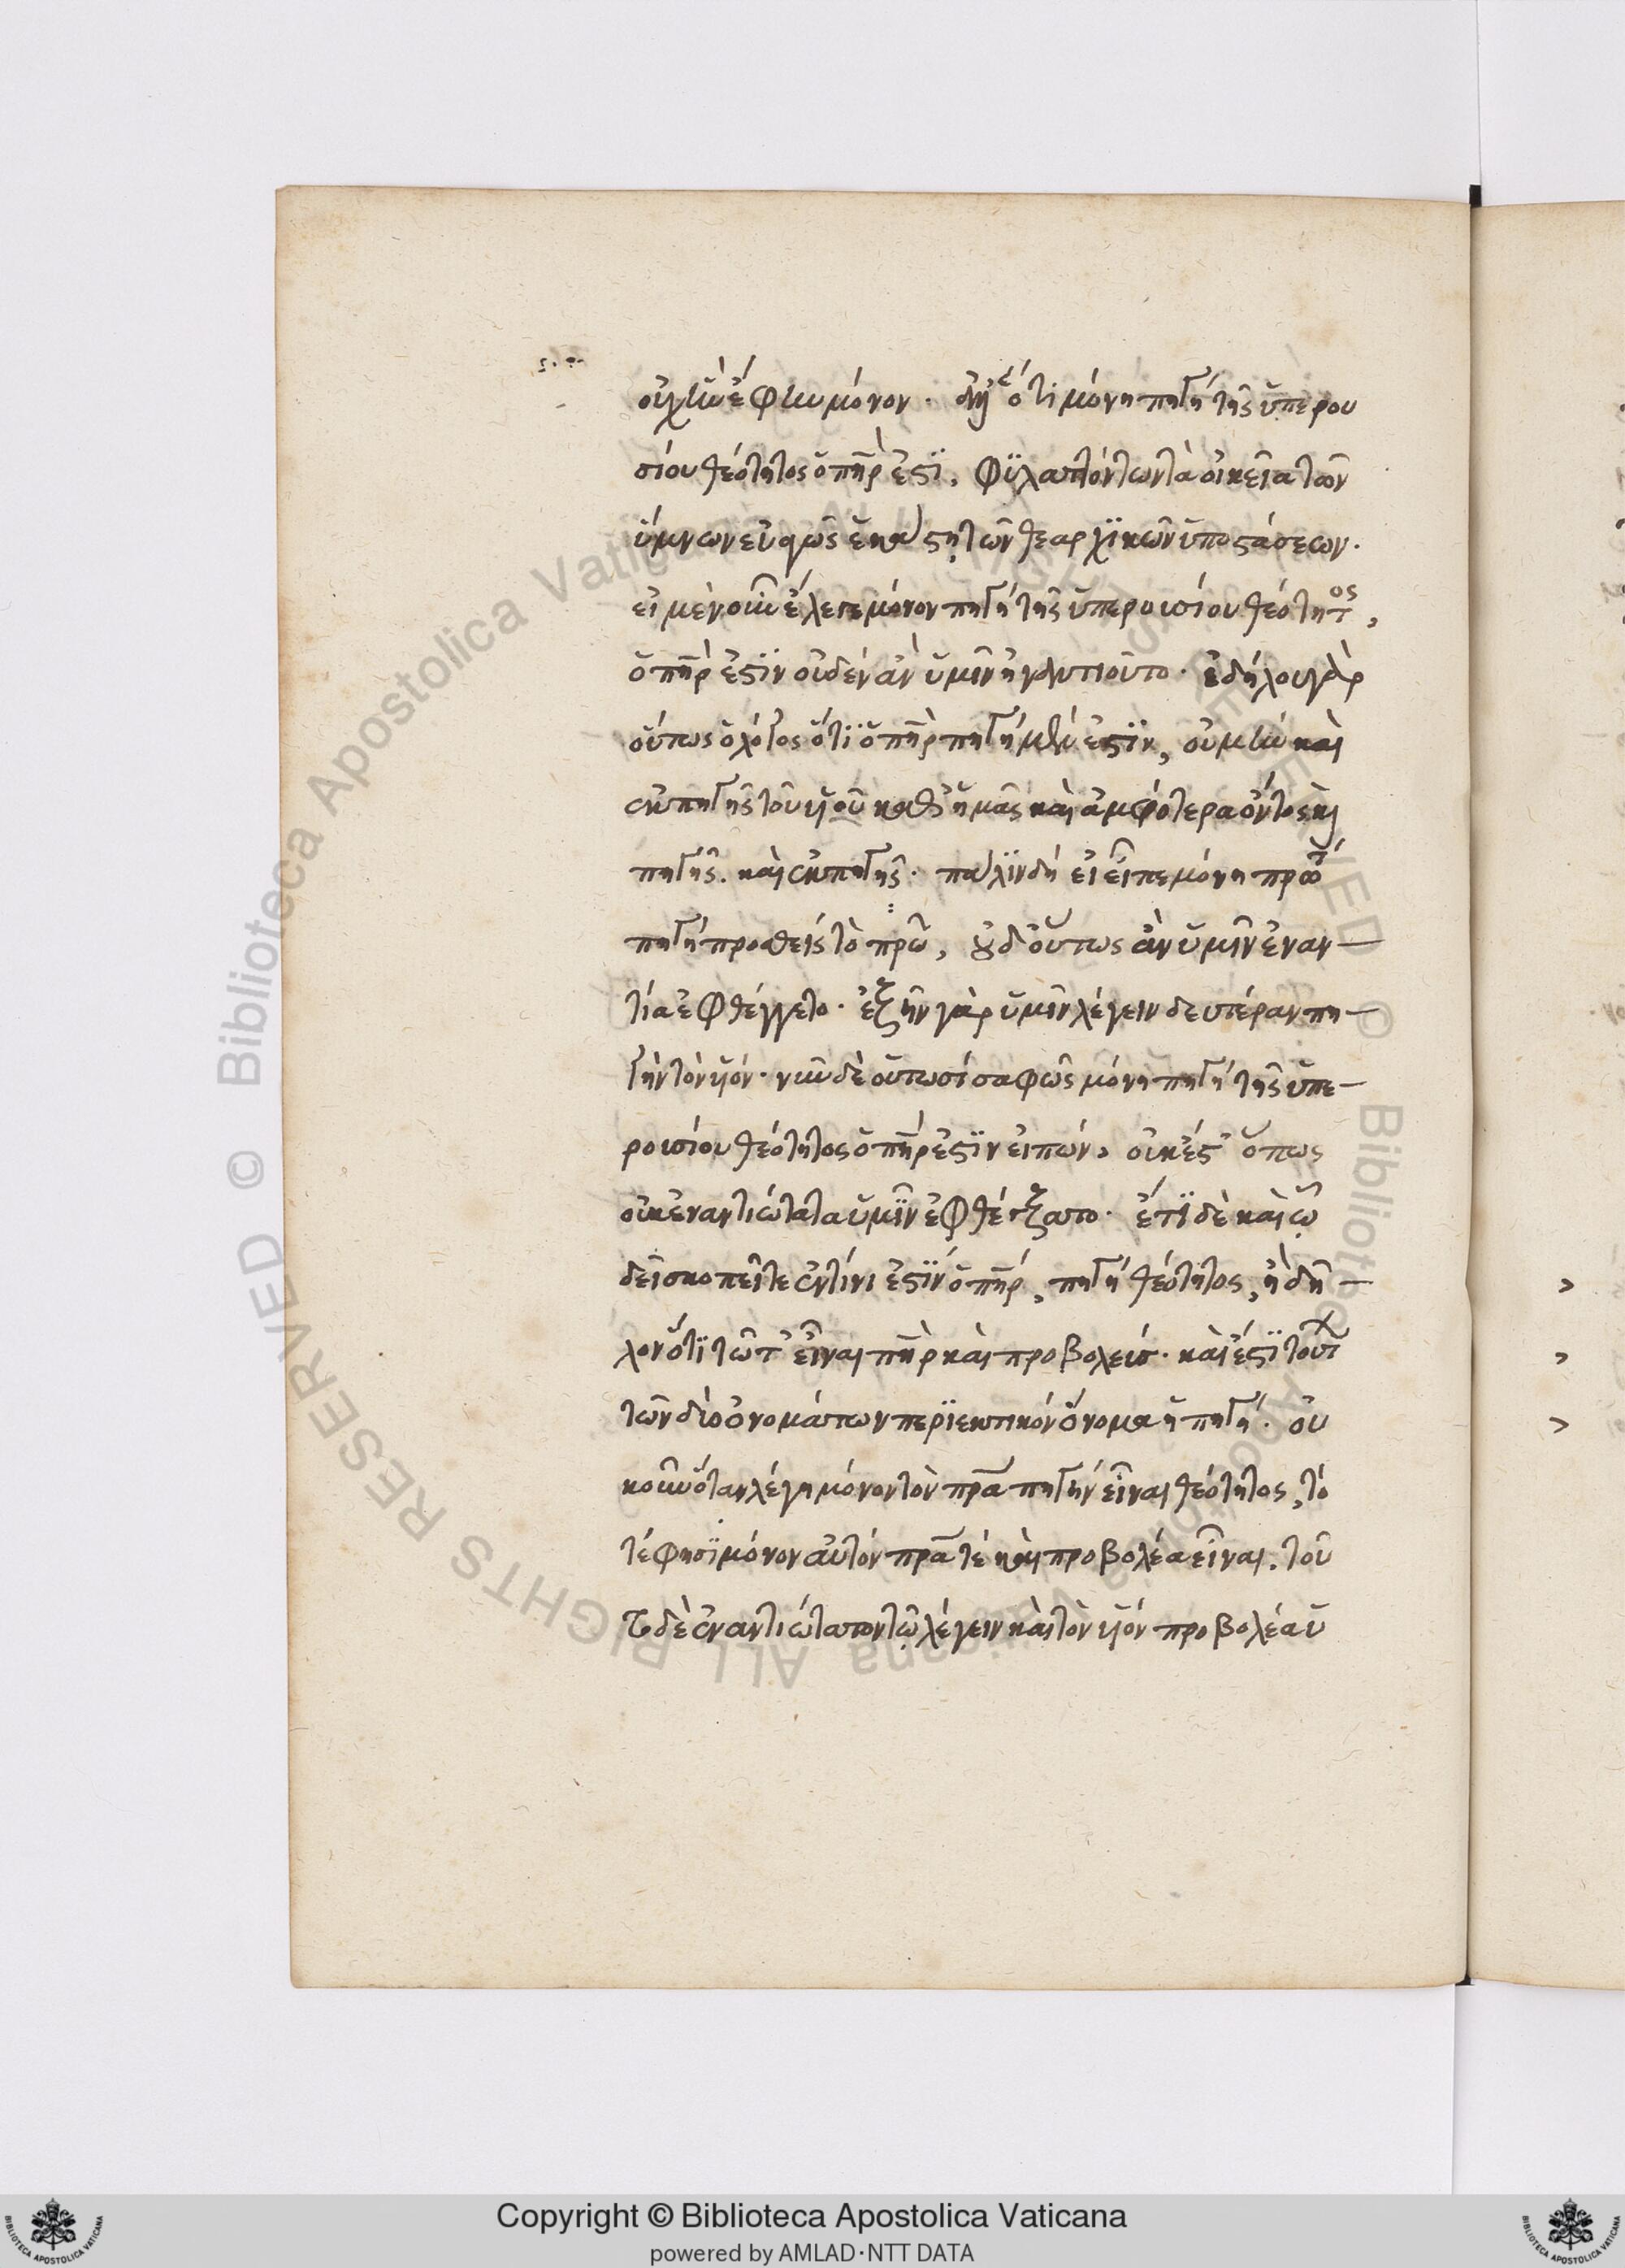 οὐχ ἣν ἔφην μόνον· ἀλλ' ὅτι μόνη πηγὴ τῆς ὑπερου
σίου θεότητος ὁ πῆρ ἐστϊ, φϋλαττόντων τὰ οἰκεῖα τῶν
ὕμνων εὐαγῶς ἑκάστῃ τῶν θεαρχϊκῶν ὑποστάσεων.
εἰ μὲν οὖν ἔλεγε μόνον πηγὴ τῆς ὑπερουσίου θεότητος,
ὁ πῆρ ἐστϊν οὐδὲν ἂν ὑμῖν ἠναντιοῦτο· ἐδήλου γὰρ
οὕτως ὁ λόγος ὅτϊ ὁ πῆρ πηγὴ μέν ἐστϊν, οὐ μὴν καὶ
ἐκ πηγῆς τοῦ υἱοῦ καθ' ἡμᾶς καὶ ἀμφότερα ὄντος καὶ
πηγῆς. καὶ ἐκ πηγῆς· πάλϊν δὴ εἰ εἶπε μόνη πρώτ
πηγὴ προσθεὶς τὸ πρώ, οὐδ' οὕτως ἂν ὑμῖν ἐναν
τία ἐφθέγγετο· ἐξῆν γὰρ ὑμῖν λέγειν δευτέραν πη
γὴν τὸν υἱόν· νῦν δὲ οὑτωσί σαφῶς μόνη πηγὴ τῆς ὑπε
ρουσίου θεότητος ὁ πῆρ ἐστϊν εἰπών, οὐκ ἔστ' ὅπως
οὐκ ἐναντιώτατα ὑμῖν ἐφθέγξατο· ἔτϊ δὲ καὶ ὧ
δε σκοπεῖτε ἐν τίνι ἐστϊν ὁ πῆρ, πηγὴ θεότητος, ἢ δῆ
λον ὅτϊ τῶ τ' εἶναι πῆρ καὶ προβολεύς· καὶ ἔστϊ τοῦτ
τῶν δύο ὀνομάτων περϊεκτικὸν ὄνομα ἡ πηγή· οὐ
κοῦν ὅταν λέγη μόνον τὸν πρα πηγὴν εἶναι θεότητος, τό
τέ φησϊ μόνον αὐτὸν πρα τὲ καὶ προβολέα εἶναι. τού
τω δὲ ἐναντιώτατον τῷ λέγειν καὶ τὸν υἱόν προβολέα ὑ